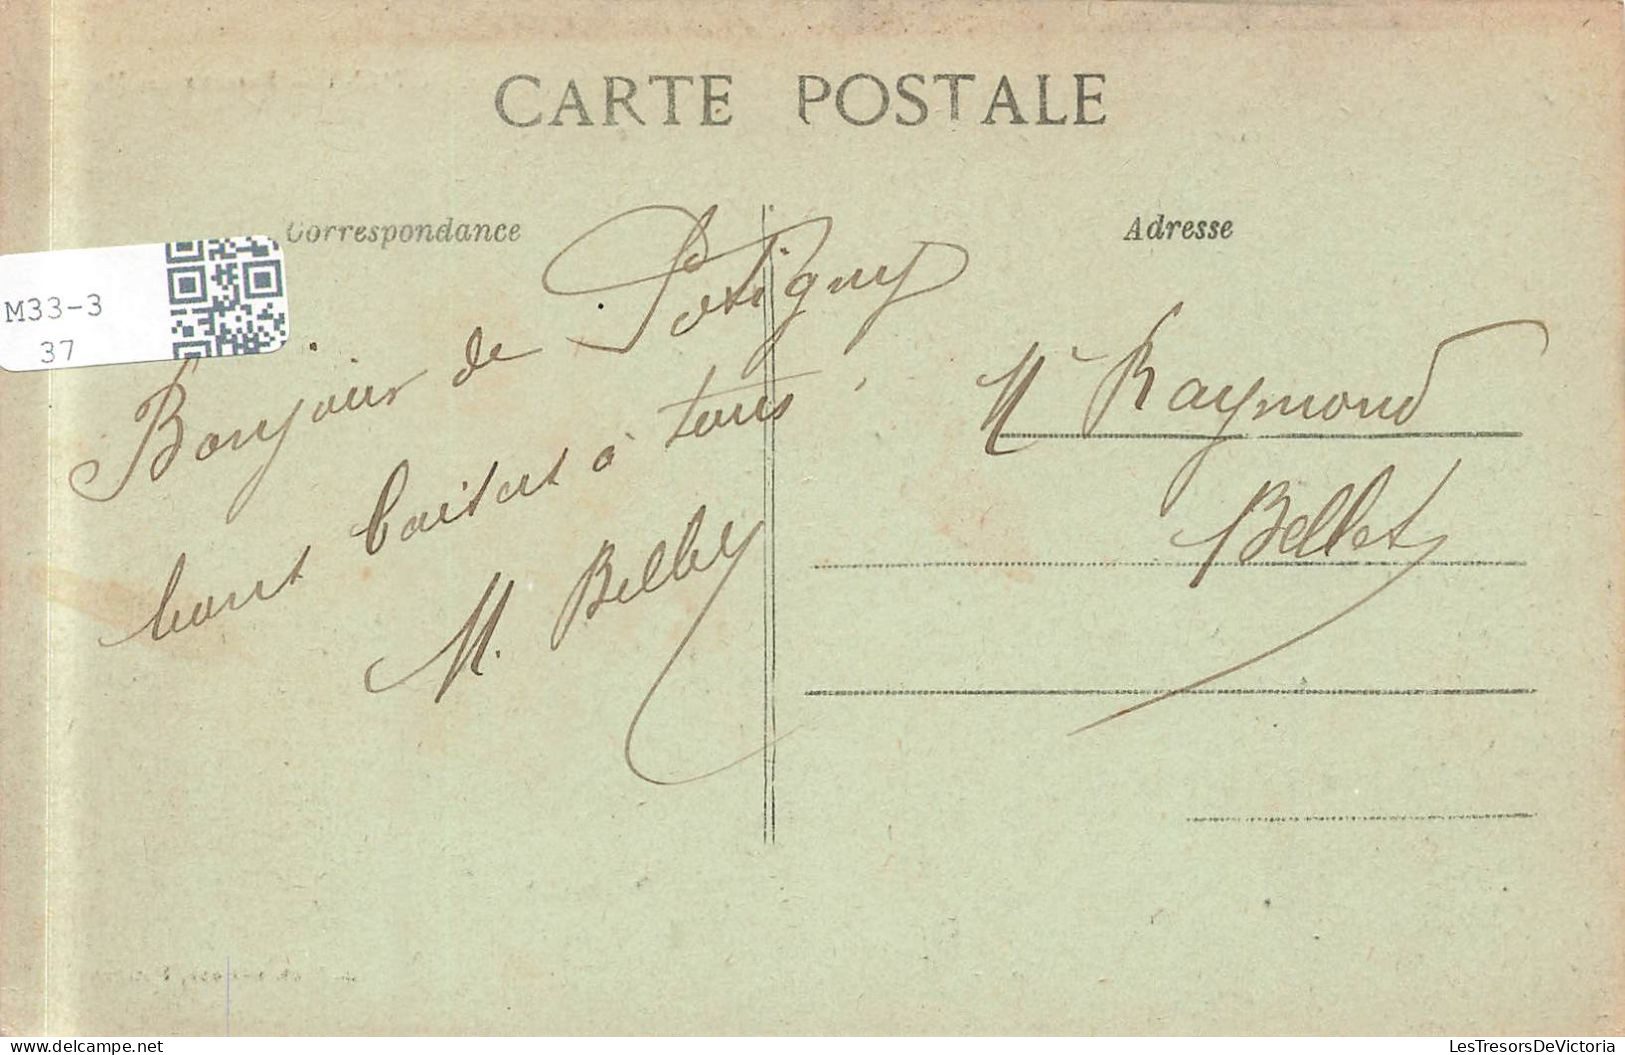 CARTE POSTALE
Correspondance
Adresse
M33-3
37
Bonjour de Potigny
bons baisers à tous
M. Bellet
Mr Raymond
Bellet
delcampe.net
LesTresorsDeVictoria